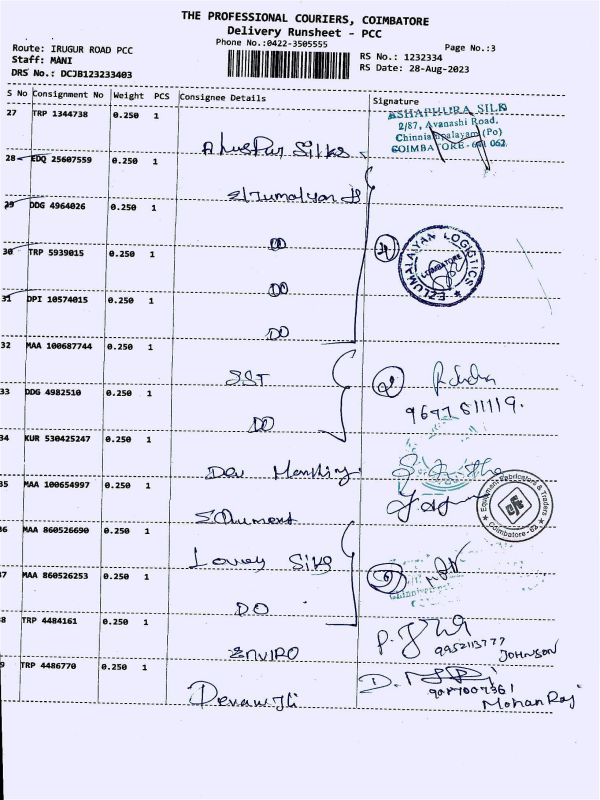 THE PROFESSIONAL COURIERS, COIMBATORE
Delivery Runsheet - PCC
Phone No.:0422-3505555
Page No.:3
Route: IRUGUR ROAD PCC
Staff: MANI
DRS No.: DCJB123233403
RS No.: 1232334
RS Date: 28-Aug-2023
S No Consignment No Weight PCS Consignee Details Signature
27 TRP 1344738 0.250 1
ASHAPHURA SILK
2/87, Avanashi Road,
Chinniampalayam (Po)
COIMBATORE - 641 062.
Silks
28 EDQ 25607559 0.250 1
29 DDG 4964026 0.250 1
DO
30 TRP 5939015 0.250 1
DO
EZLUMALAIYAN LOGISTICS
COIMBATORE
31 DPI 10574015 0.250 1
DO
32 MAA 100687744 0.250 1
SST
2
33 DDG 4982510 0.250 1
DO
9677611119.
34 KUR 530425247 0.250 1
Dev
35 MAA 100654997 0.250 1
Equipment Fabricators & Traders
Coimbatore - 62
36 MAA 860526690 0.250 1
37 MAA 860526253 0.250 1
DO
38 TRP 4484161 0.250 1
ENVIRO
9952113777
JOHNSON
39 TRP 4486770 0.250 1
Mohan Raj